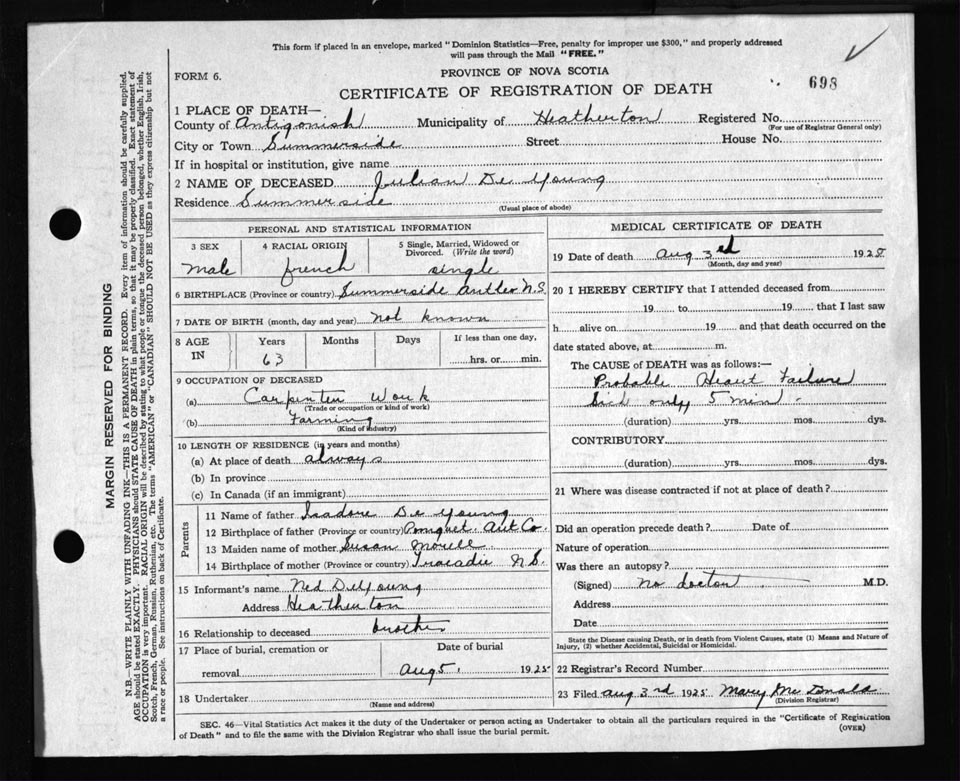 This form if placed in an envelope, marked "Dominion Statistics—Free, penalty for improper use $300," and properly addressed
will pass through the Mail "FREE."
FORM 6.
PROVINCE OF NOVA SCOTIA
698
CERTIFICATE OF REGISTRATION OF DEATH
1 PLACE OF DEATH—
County of Antigonish Municipality of Heatherton Registered No.
(For use of Registrar General only)
City or Town Summerside Street House No.
If in hospital or institution, give name
2 NAME OF DECEASED Julian De Young
Residence Summerside
(Usual place of abode)
PERSONAL AND STATISTICAL INFORMATION
3 SEX 4 RACIAL ORIGIN 5 Single, Married, Widowed or
Divorced. (Write the word)
male french single
6 BIRTHPLACE (Province or country) Summerside Antler N.S.
7 DATE OF BIRTH (month, day and year) not known
8 AGE IN Years Months Days If less than one day,
63 hrs. or min.
9 OCCUPATION OF DECEASED
(a) Carpenter Work
(Trade or occupation or kind of work)
(b) Farming
(Kind of industry)
10 LENGTH OF RESIDENCE (in years and months)
(a) At place of death always
(b) In province
(c) In Canada (if an immigrant)
Parents
11 Name of father Isadore De Young
12 Birthplace of father (Province or country) Pomquet Ant Co.
13 Maiden name of mother Susan
14 Birthplace of mother (Province or country) Tracadie N S.
15 Informant's name Ned DeYoung
Address Heatherton
16 Relationship to deceased brother
17 Place of burial, cremation or Date of burial
removal Aug 5, 1925
18 Undertaker
(Name and address)
MEDICAL CERTIFICATE OF DEATH
19 Date of death Aug 3rd 1925
(Month, day and year)
20 I HEREBY CERTIFY that I attended deceased from
19 to 19 , that I last saw
h alive on 19 and that death occurred on the
date stated above, at m.
The CAUSE OF DEATH was as follows:—
Probable Heart Failure
Sick only 5 min.
(duration) yrs. mos. dys.
CONTRIBUTORY
(duration) yrs. mos. dys.
21 Where was disease contracted if not at place of death?
Did an operation precede death? Date of
Nature of operation
Was there an autopsy?
(Signed) no doctor M.D.
Address
Date
State the Disease causing Death, or in death from Violent Causes, state (1) Means and Nature of
Injury, (2) whether Accidental, Suicidal or Homicidal.
22 Registrar's Record Number
23 Filed Aug 3rd 1925 Mary McDonald
(Division Registrar)
SEC. 46—Vital Statistics Act makes it the duty of the Undertaker or person acting as Undertaker to obtain all the particulars required in the "Certificate of Registration
of Death" and to file the same with the Division Registrar who shall issue the burial permit. (OVER)
MARGIN RESERVED FOR BINDING
N.B.—WRITE PLAINLY WITH UNFADING INK—THIS IS A PERMANENT RECORD. Every item of information should be carefully supplied.
AGE should be stated EXACTLY. PHYSICIANS should STATE CAUSE OF DEATH in plain terms, so that it may be properly classified. Exact statement of
OCCUPATION is very important. RACIAL ORIGIN will be described by stating to what people or tongue the deceased person belonged, whether English, Irish,
Scotch, French, German, Russian, Ruthenian, etc. The terms "AMERICAN" or "CANADIAN" SHOULD NOT BE USED as they express citizenship but not
a race or people. See instructions on back of Certificate.